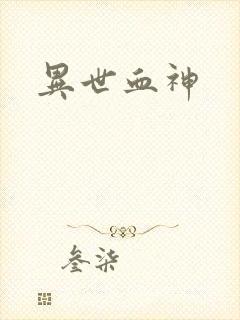 異世血神
叁柒